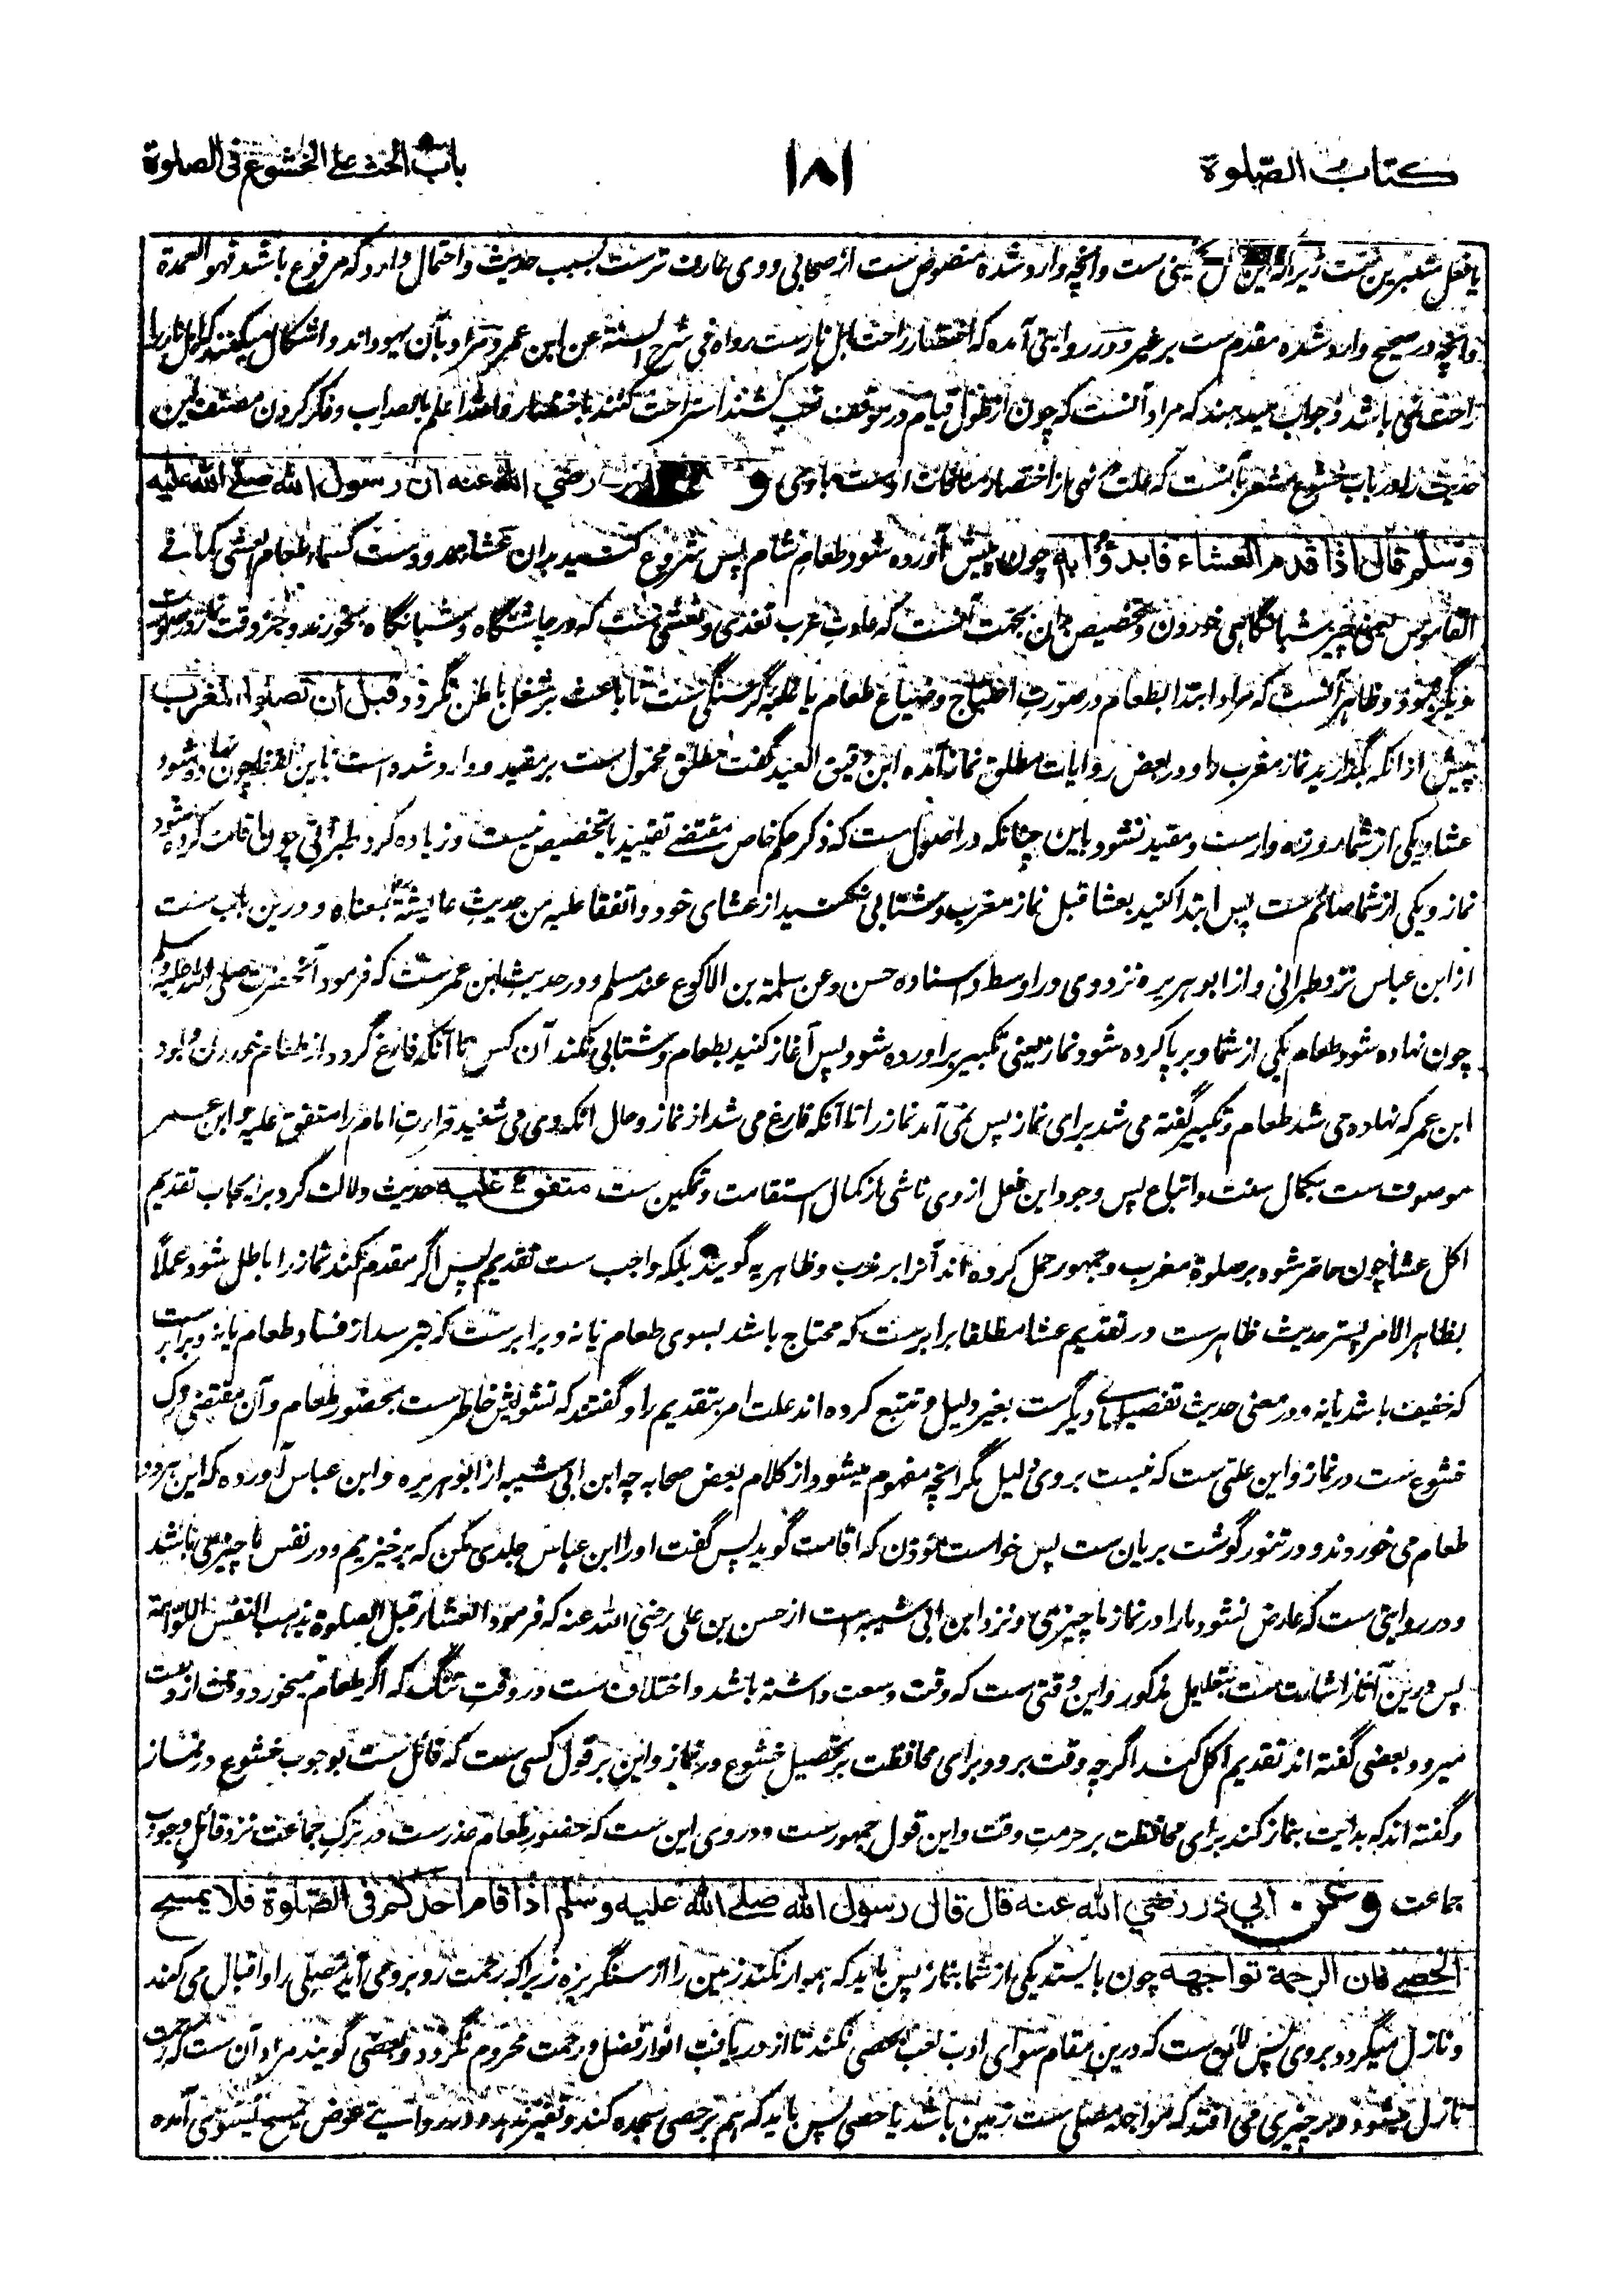 كتاب الصلوة
١٨١
باب الحث على الخشوع فى الصلوة
يا فعل ست زيراكه اين ست وانچه وارد شده منصوص ست از صحابى ووى عارف ترست بسبب حديث واحتمال دارد كه مرفوع باشد فهو العمدة
وانچه در صحيح وارد شده مقدم ست بر غير ودر روايتى آمده كه اختصار راحت اهل نارست رواه فى شرح السنة عن ابن عمر ومراد بآن يهود اند واشكال ميكنند كه اهل نار را
راحت نمى باشد وجواب ميدهند كه مراد آنست كه چون از طول قيام در موقف تعب كشند استراحت كنند باختصار والله اعلم بالصواب وذكر كردن مصنف اين
حديث را در باب خشوع مشعر بآنست كه علت نهى از اختصار منافات اوست باوى و رضي الله عنه ان رسول الله صلے الله عليه
وسلم قال اذا قدم العشاء فابدؤا به چون پيش آورده شود طعام شام پس شروع كنيد بدان عشا ممدودست كسماء طعام العشى كما فى
القاموس يعنى چيز شبانگاهى خوردن وتخصيص بدان بجهت آنست كه عادت عرب تغدى وتعشى ست كه در چاشتگاه وشبانگاه بخورند وجز وقت نماز در صورت
ديگر نبود وظاهر آنست كه مراد ابتدا بطعام در صورت احتياج وضياع طعام يا غلبه گرسنگى ست تا باعث بر شغل باطن نگردد قبل ان تصلوا المغرب
پيش ازانكه بگذاريد نماز مغرب را ودر بعض روايات مطلق نماز آمده ابن دقيق العيد گفت مطلق محمول ست بر مقيد ووارد شده است باين لفظ چون نهاده شود
عشا ويكى از شما روزه دارست ومقيد نشود باين چنانكه در اصول ست كه ذكر حكم خاص مقتضے تقييد يا تخصيص نيست وزياده كرد طبرانى چون اقامت كرده شود
نماز ويكى از شما صائم ست پس ابتدا كنيد بعشا قبل نماز مغرب وشتابى نكنيد از عشاى خود واتفقا عليه من حديث عايشة بمعناه ودرين باب ست
از ابن عباس نزد طبرانى واز ابو هريره نزد وى در اوسط واسناده حسن وعن سلمة بن الاكوع عند مسلم ودر حديث ابن عمرست كه فرمود آنحضرت صلى الله عليه وسلم
چون نهاده شود طعام يكى از شما وبرپا كرده شود نماز يعنى تكبير برآورده شود پس آغاز كنيد بطعام وشتابى نكند آن كس تا آنكه فارغ گردد از طعام خوردن وبود
ابن عمر كه نهاده مى شد طعام وتكبير گفته مى شد براى نماز پس نمى آمد نماز را تا آنكه فارغ مى شد از نماز وحال انكه وى مى شنيد قراءت امام را متفق عليه وابن عمر
موصوف ست بكمال سنت واتباع پس وجود اين فعل از وى ناشى از كمال استقامت وتمكين ست متفق عليه حديث دلالت كرد بر ايجاب تقديم
اكل عشا چون حاضر شود بر صلوة مغرب وجمهور حمل كرده اند آنرا بر ندب وظاهريه گويند بلكه واجب ست تقديم پس اگر مقدم نكند نماز را باطل شود عملاً
بظاهر الامر پستر حديث ظاهرست در تقديم عشا مطلقا برابرست كه محتاج باشد بسوى طعام يا نه وبرابرست كه بترسد از فساد طعام يا نه وبرابر ست
كه خفيف باشد يا نه ودر معنى حديث تفصيلهاى ديگرست بغير دليل وتتبع كرده اند علت امر بتقديم را وگفتند كه تشويش خاطرست بحضور طعام وآن مقتضى ترك
خشوع ست در نماز واين علتى ست كه نيست بر وى دليل مگر انچه مفهوم ميشود از كلام بعض صحابه چه ابن ابى شيبه از ابو هريره وابن عباس آورده كه اين هردو
طعام مى خوردند ودر تنور گوشت بريان ست پس خواست مؤذن كه اقامت گويد پس گفت او را ابن عباس جلدى مكن كه برخيزيم ودر نفس ما چيزى باشد
ودر روايتى ست كه عارض نشود ما را در نماز ما چيزى ونزد ابن ابى شيبه است از حسن بن على رضى الله عنه كه فرمود العشاء قبل الصلوة يذهب النفس اللوامة
پس درين آثار اشارت ست بتعليل مذكور واين وقتى ست كه وقت وسعت داشته باشد واختلاف ست در وقت تنگ كه اگر طعام ميخورد وقت از دست
ميرود بعضى گفته اند تقديم اكل كند اگرچه وقت برود براى محافظت بر تحصيل خشوع در نماز واين بر قول كسى ست كه قائل ست بوجوب خشوع در نماز
وگفته اند كه بدايت بنماز كند براى محافظت بر حرمت وقت واين قول جمهورست ودر وى اين ست كه حضور طعام عذرست در ترك جماعت نزد قائل وجوب
جماعت وعن ابي ذر رضي الله عنه قال قال رسول الله صلے الله عليه وسلم اذا قام احدكم فى الصلوة فلا يمسح
الحصے فان الرحمة تواجهه چون بايستد يكى از شما بنماز پس بايد كه هموار نكند زمين را از سنگريزه زيرا كه رحمت روبرو مى آيد مصلى را واقبال مى كند
ونازل ميگردد بروى پس لائق ست كه درين مقام سواى ادب لعب بحصى نكند تا از دريافت انوار فضل ورحمت محروم نگردد وبعضى گويند مراد آن ست كه رحمت
نازل ميشود وبر چيزى مى افتد كه مواجه مصلى ست زمين باشد يا حصى پس بايد كه هم بر حصى سجده كند وتغير ندهد ودر روايتے عوض يمسح تسوى آمده